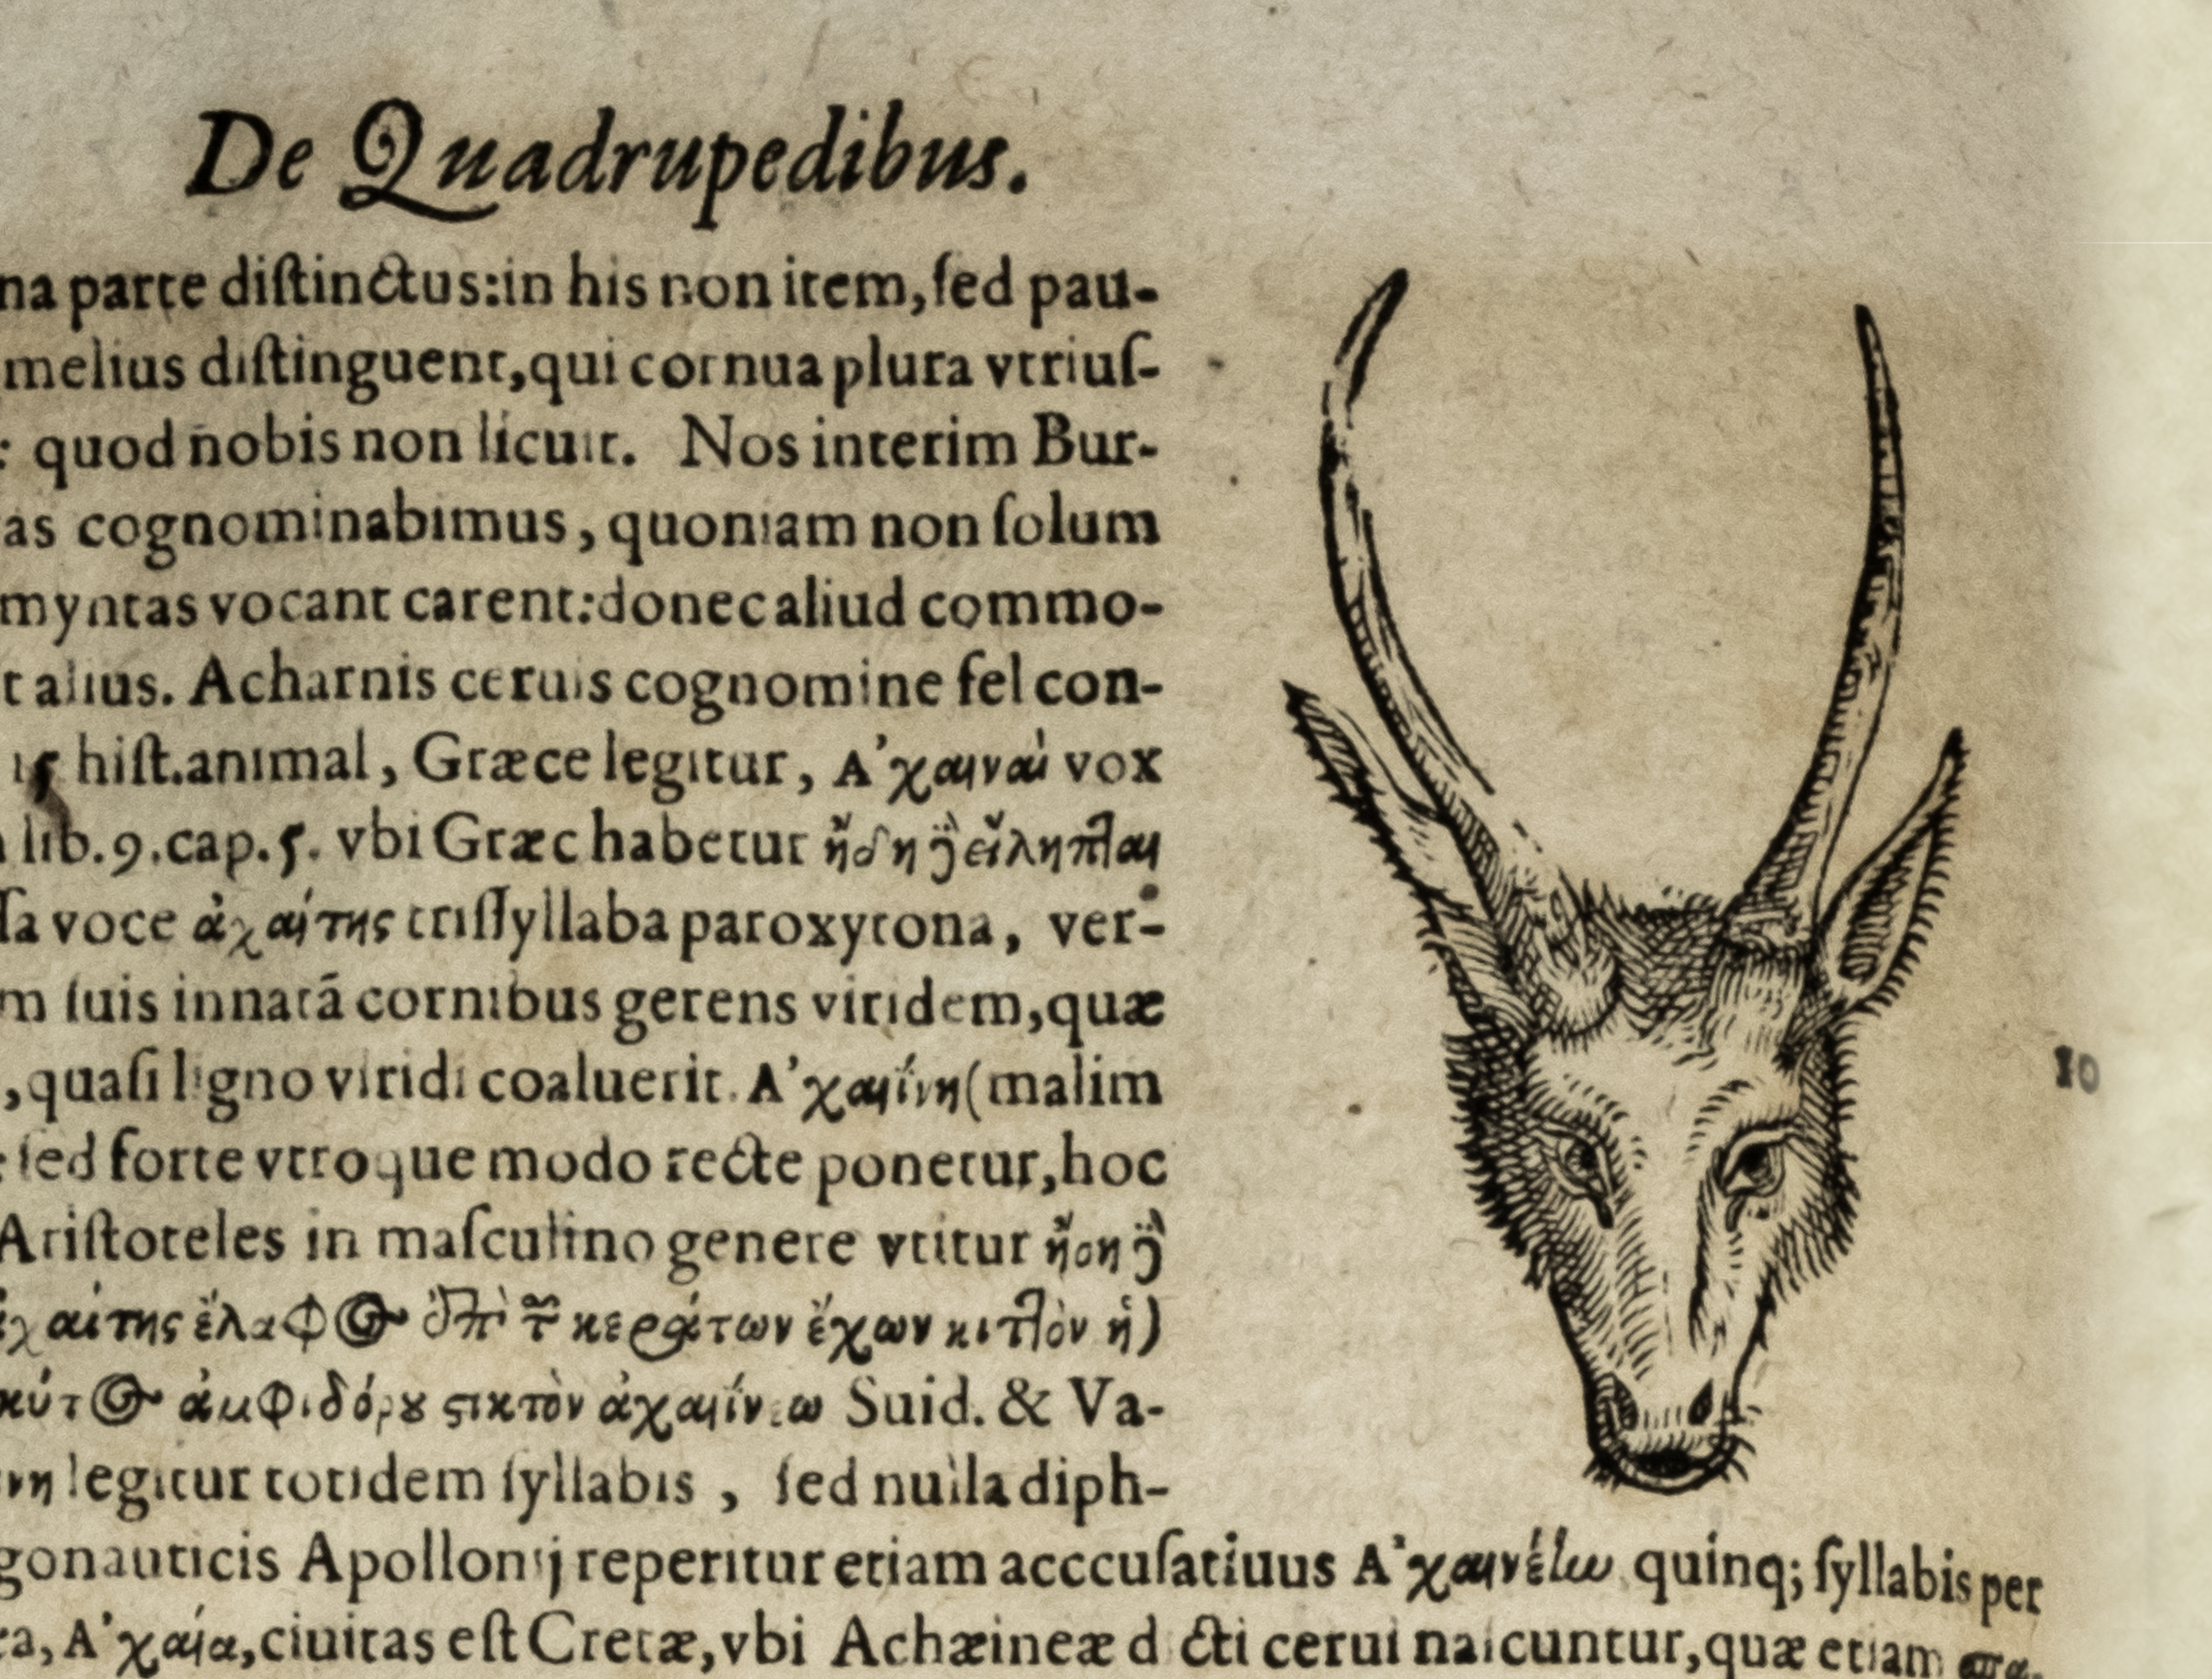 De Quadrupedibus.
na parte diſtinctus:in his non item,ſed pau-
melius diſtinguent,qui cornua plura vtriuſ-
: quod nobis non licuit. Nos interim Bur-
as cognominabimus, quoniam non ſolum
myntas vocant carent:donec aliud commo-
t alius. Acharnis ceruis cognomine fel con-
15 hiſt.animal, Græce legitur, Α'χαιναὶ vox
lib.9.cap.5. vbi Græc habetur ἤδη εἴληπται
ſa voce ἀχαίτης triſſyllaba paroxytona, ver-
m ſuis innatã cornibus gerens viridem,quæ
,quaſi ligno viridi coaluerit. Α'χαιΐνη(malim
ſed forte vtroque modo recte ponetur,hoc
Ariſtoteles in maſculino genere vtitur
χαίτης ἔλαφος ἐπὶ κεράτων ἔχων κιτλὸν ἡ)
Suid. & Va-
νη legitur totidem ſyllabis, ſed nulla diph-
gonauticis Apollonij reperitur etiam acccuſatiuus quinq; ſyllabis per
ea, Α'χαία,ciuitas eſt Cretæ,vbi Achæineæ d cti cerui naſcuntur,quæ etiam
10